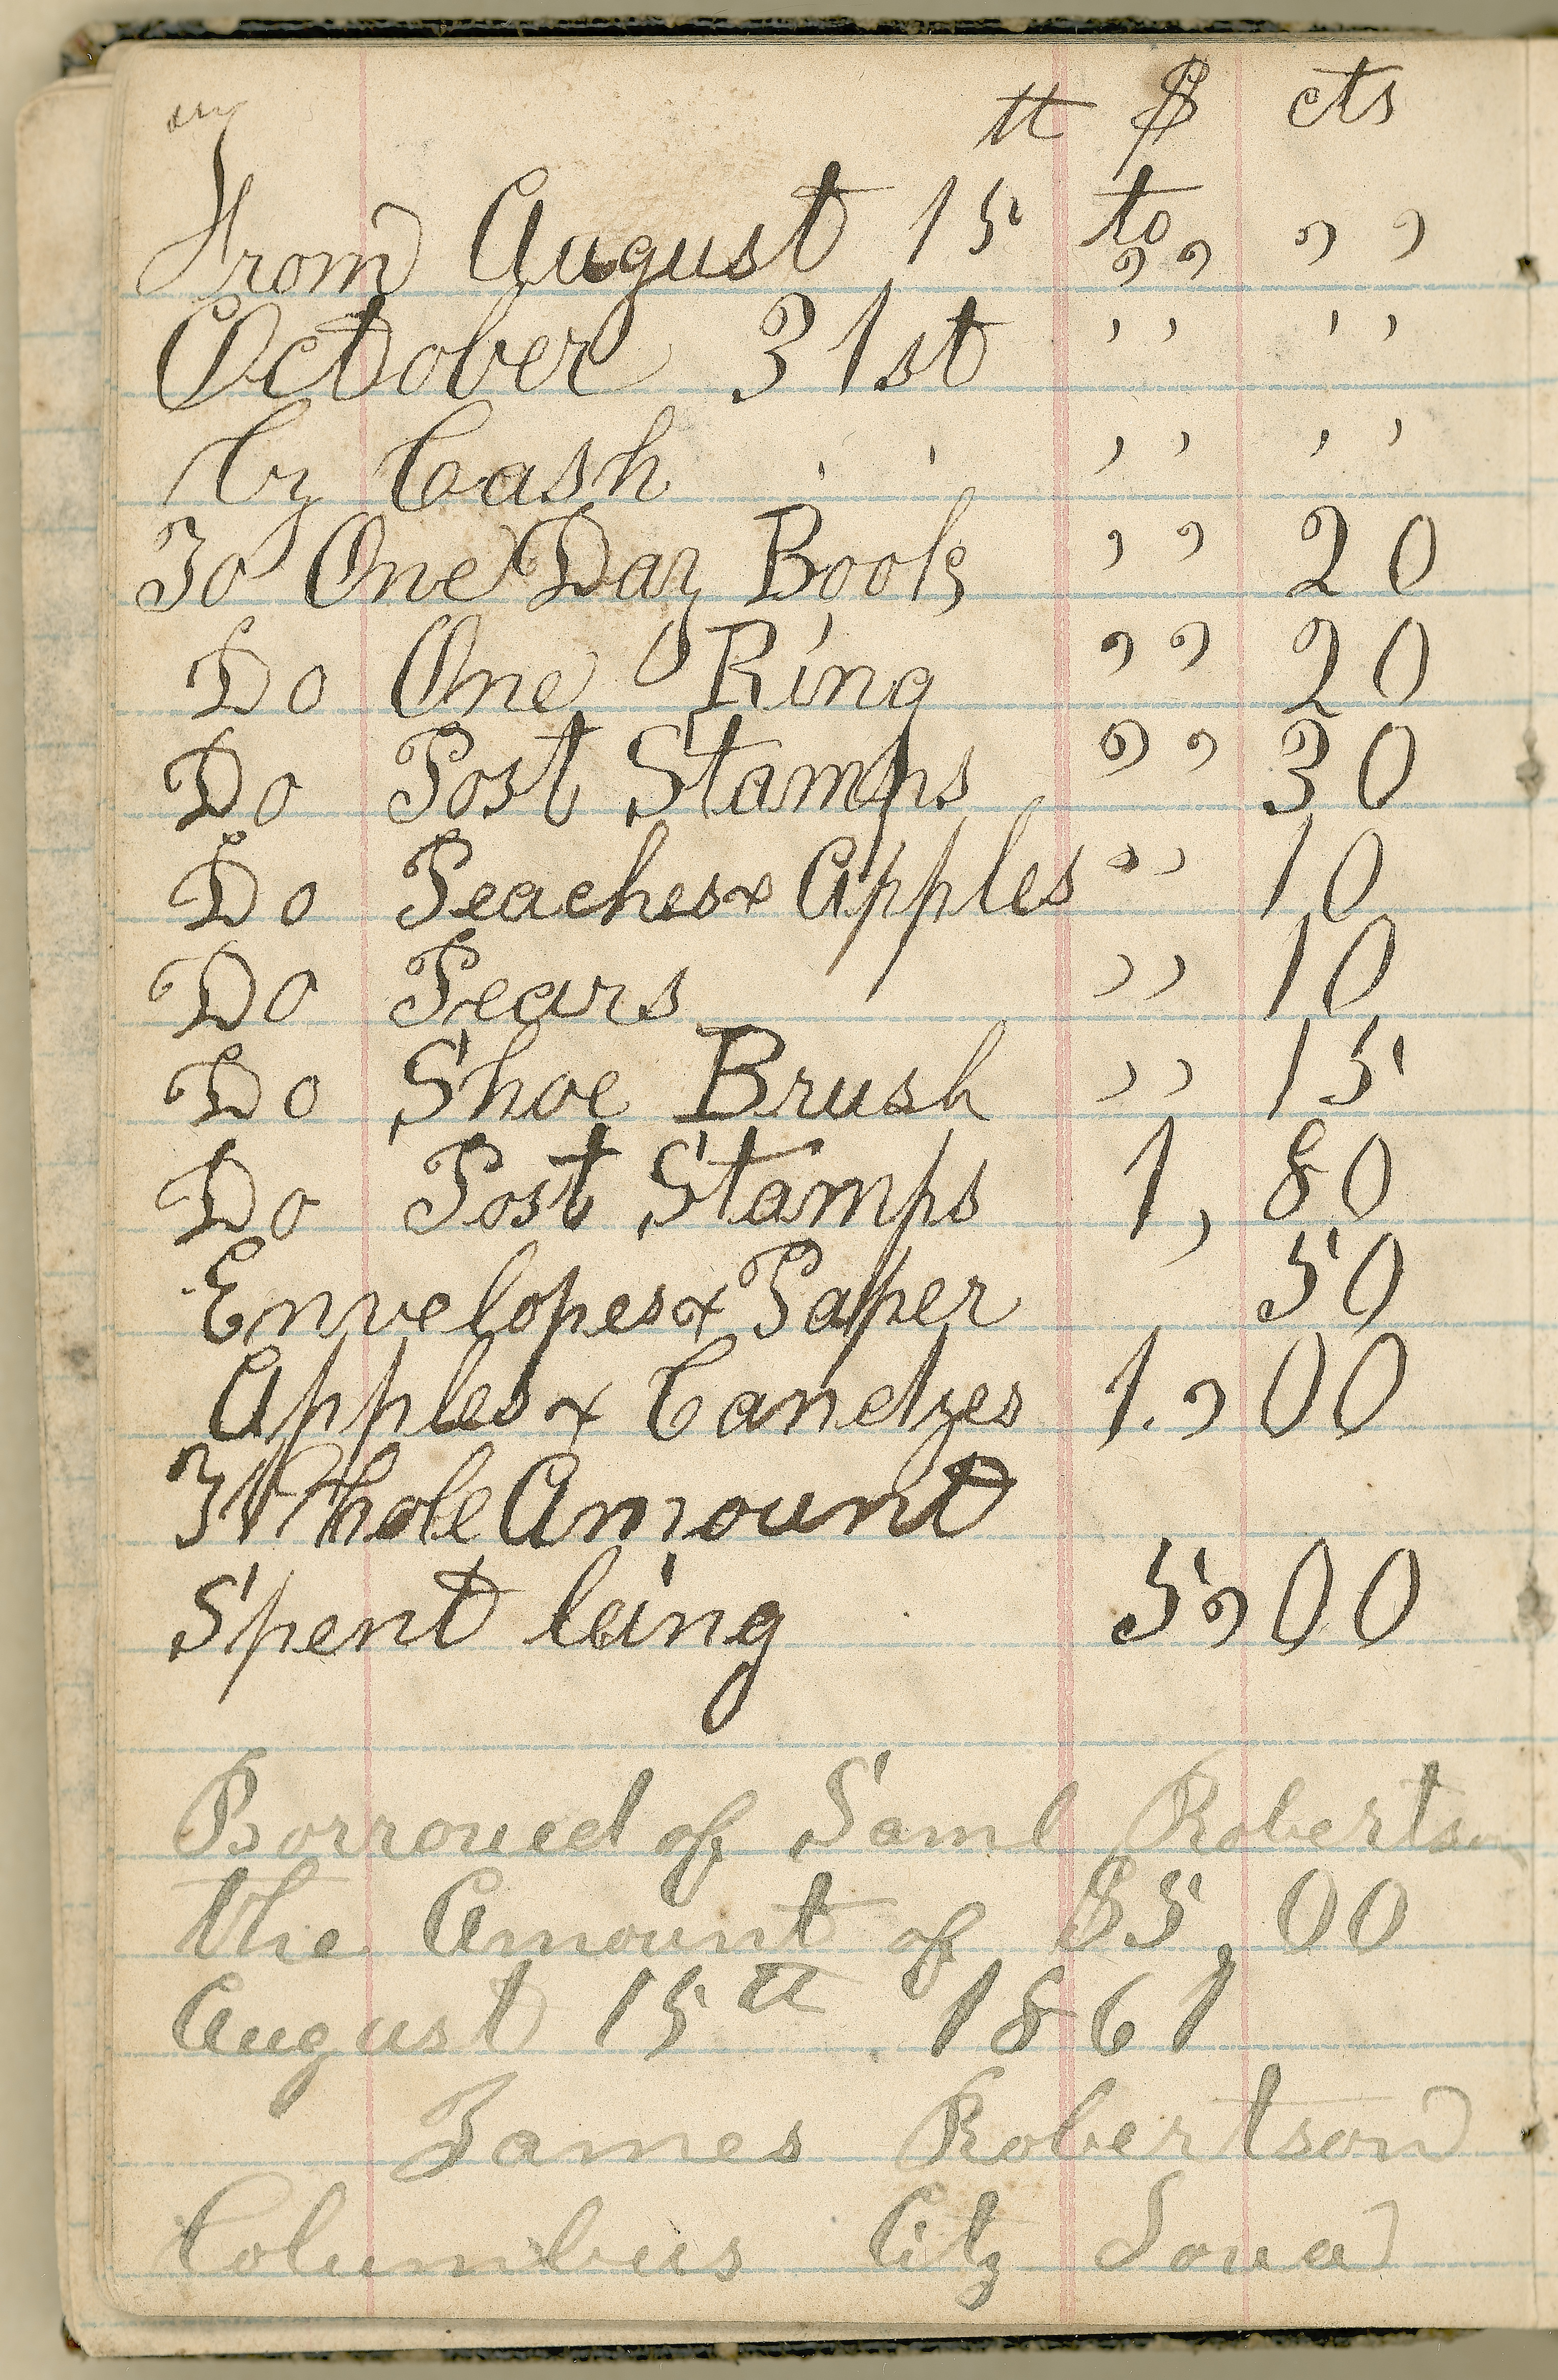 tt $ cts
From August 15 to ,, ,,
October 31st ,, ,,
by Cash ,, ,,
To One Day Book ,, 20
Do One Ring ,, 20
Do Post Stamps ,, 30
Do Peaches & Apples ,, 10
Do Pears ,, 10
Do Shoe Brush ,, 15
Do Post Stamps 1, 80
Envelopes & Paper 50
Apples & Candyes 1., 00
Whole Amount
Spent being 5,00
Borroued of Saml Robertson
the Amount of $5,00
August 15tt 1861
James Robertson
Columbus City Ioua